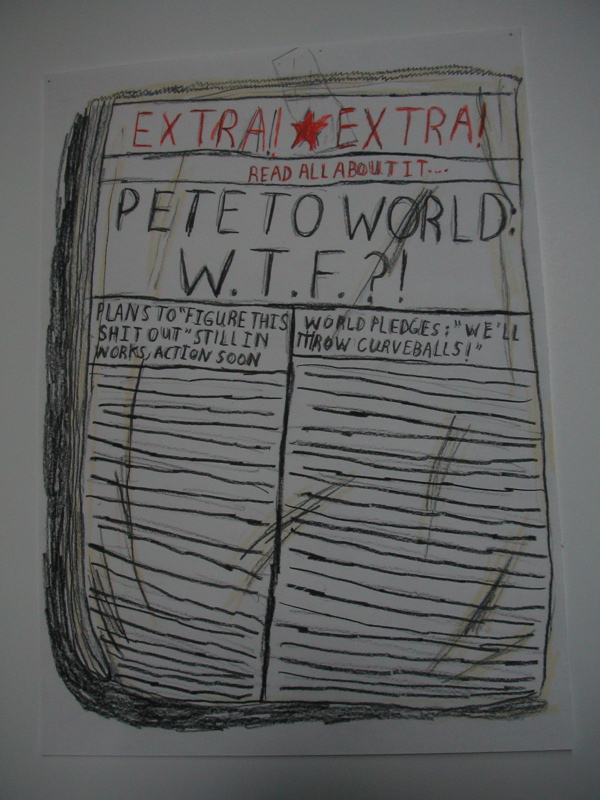 EXTRA! ★ EXTRA!
READ ALL ABOUT IT....
PETE TO WORLD:
W.T.F.?!
PLANS TO "FIGURE THIS
SHIT OUT" STILL IN
WORKS, ACTION SOON
WORLD PLEDGES: "WE'LL
THROW CURVEBALLS!"